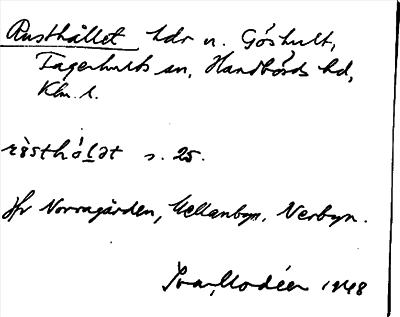 Rusthållet hdr u. Göshult,
Fagerhults sn, Handbörds hd,
Klm. l.
s. 25.
Hr Norragården, Mellanbyn, Nerbyn.
Ivar Modéer 1948